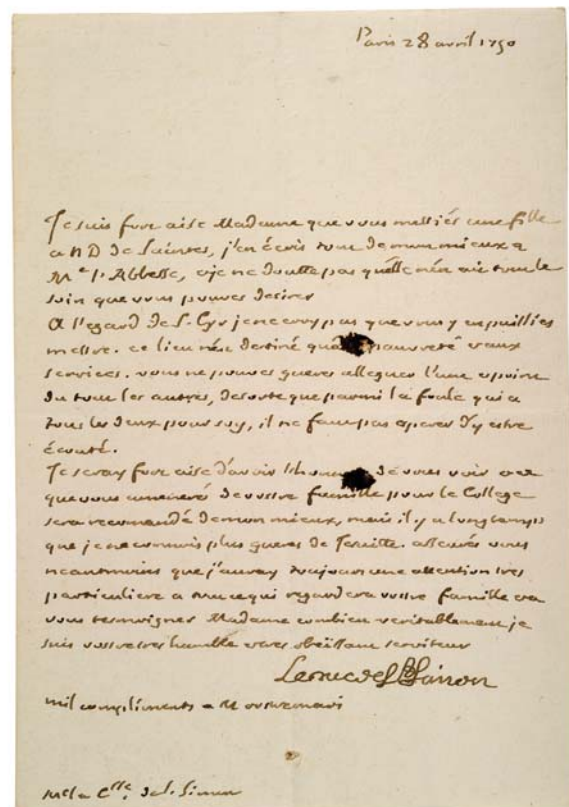 Paris 28 avril 1750
Je suis fort aise Madame que vous mettiés une fille
a N D de Saintes, j'en écris tout de mon mieux a
Me l'Abbesse, et je ne doutte pas qu'elle n'en ait tout le
soin que vous pouvés desirer
A l'egard de S. Cyr je ne croy pas que vous y en puissiés
mettre. ce lieu n'est destiné qu'a pauvreté et aux
services. vous ne pouvés gueres alleguer l'une et point
du tout les autres, de sorte que parmi la foule qui a
tous les deux pour soy, il ne faut pas esperer d'y estre
écouté.
Je seray fort aise d'avoir l'honneur de vous voir et ce
que vous amenerés de vostre famille pour le College
sera recomandé de mon mieux, mais il y a longtemps
que je ne connois plus gueres de Jesuitte. asseurés vous
neantmoins que j'auray toujours une attention tres
particuliere a tout ce qui regardera vostre famille et a
vous tesmoigner Madame combien veritablement je
suis vostre tres humble et tres obéissant serviteur
Le duc de S Simon
mil compliments a M vostre mari
Me la Csse de S. Simon